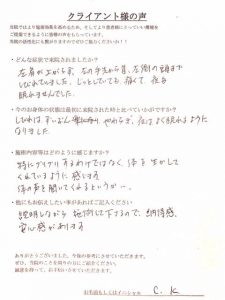 クライアント様の声
当院ではより施術効果を高めるため、そしてより患者様にとっていい環境を
ご提案できるように皆様の声をもらっています。
当院の活性化にも繋がりますのでぜひご協力くださいね!!
・どんな症状で来院されましたか?
左肩が上がらず、左の手先から首、左側の頭まで
しびれていました。じっとしていても、痛くて、夜も
眠れませんでした。
・今のお身体の状態は最初に来院された時と比べていかがですか?
しびれはずいぶん やわらぎ、夜はよく眠れるように
なりました。
・施術内容等はどのように感じますか?
特にグリグリするわけではなく、体を 生かして
くれているように 感じます。
体の声を聞いてくれるというか…
・他にもお伝えしたい事があればご記入ください
説明しながら 施術して下さるので、納得感、
安心感があります
ありがとうございました。今後の参考にさせていただきます。
ぜひ、当院のことを周りの方にご紹介ください。
誠意を持って、お手伝いさせていただきます。
お名前もしくはイニシャル C. K